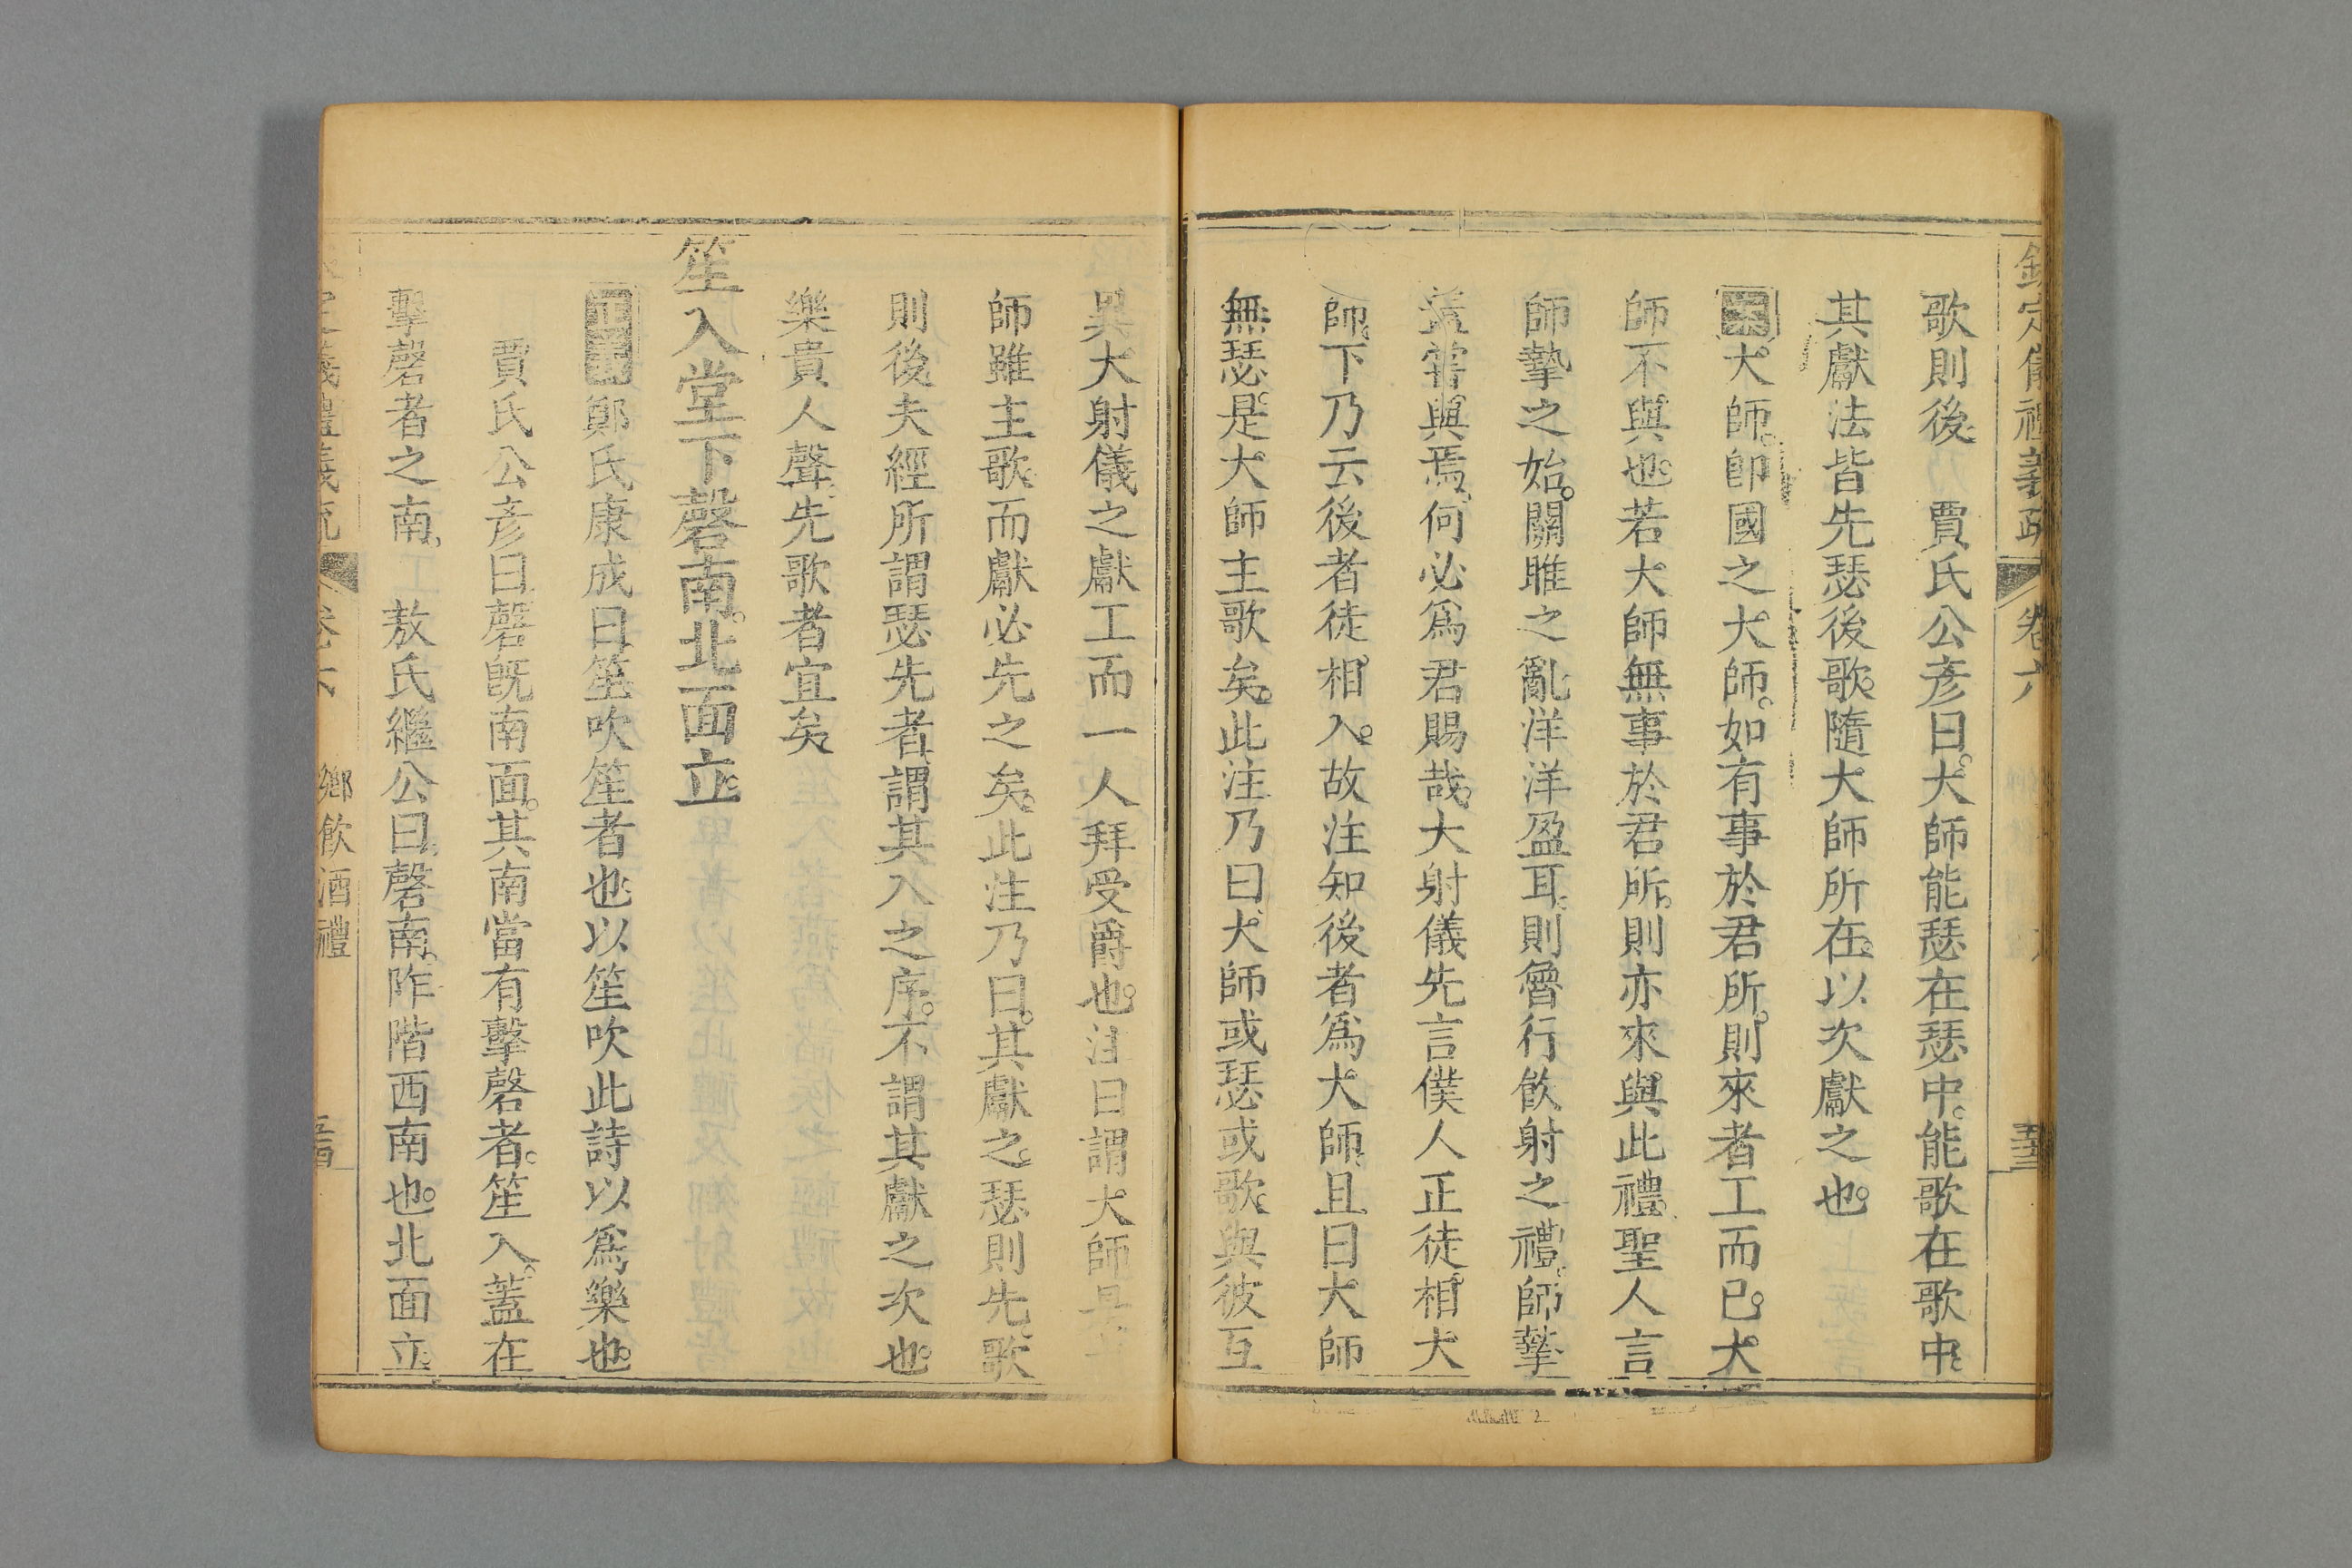 欽定儀禮義疏 卷六
歌則後 賈氏公彥曰大師能瑟在瑟中能歌在歌中
其獻法皆先瑟後歌隨大師所在以次獻之也
案大師卽國之大師如有事於君所則來者工而已大
師不與也若大師無事於君所則亦來與此禮聖人言
師摯之始關雎之亂洋洋盈耳則魯行飲射之禮師摯
蓋嘗與焉何必爲君賜哉大射儀先言僕人正徒相大
師下乃云後者徒相入故注知後者爲大師且曰大師
無瑟是大師主歌矣此注乃曰大師或瑟或歌與彼互
異大射儀之獻工而一人拜受爵也注曰謂大師是
師雖主歌而獻必先之矣此注乃曰其獻之瑟則先歌
則後夫經所謂瑟先者謂其入之序不謂其獻之次也
樂貴人聲先歌者宜矣
笙入堂下磬南北面立
正義鄭氏康成曰笙吹笙者也以笙吹此詩以爲樂也
賈氏公彥曰磬旣南面其南當有擊磬者笙入蓋在
擊磬者之南 敖氏繼公曰磬南阼階西南也北面立
定儀禮義疏 卷六 鄉飲酒禮